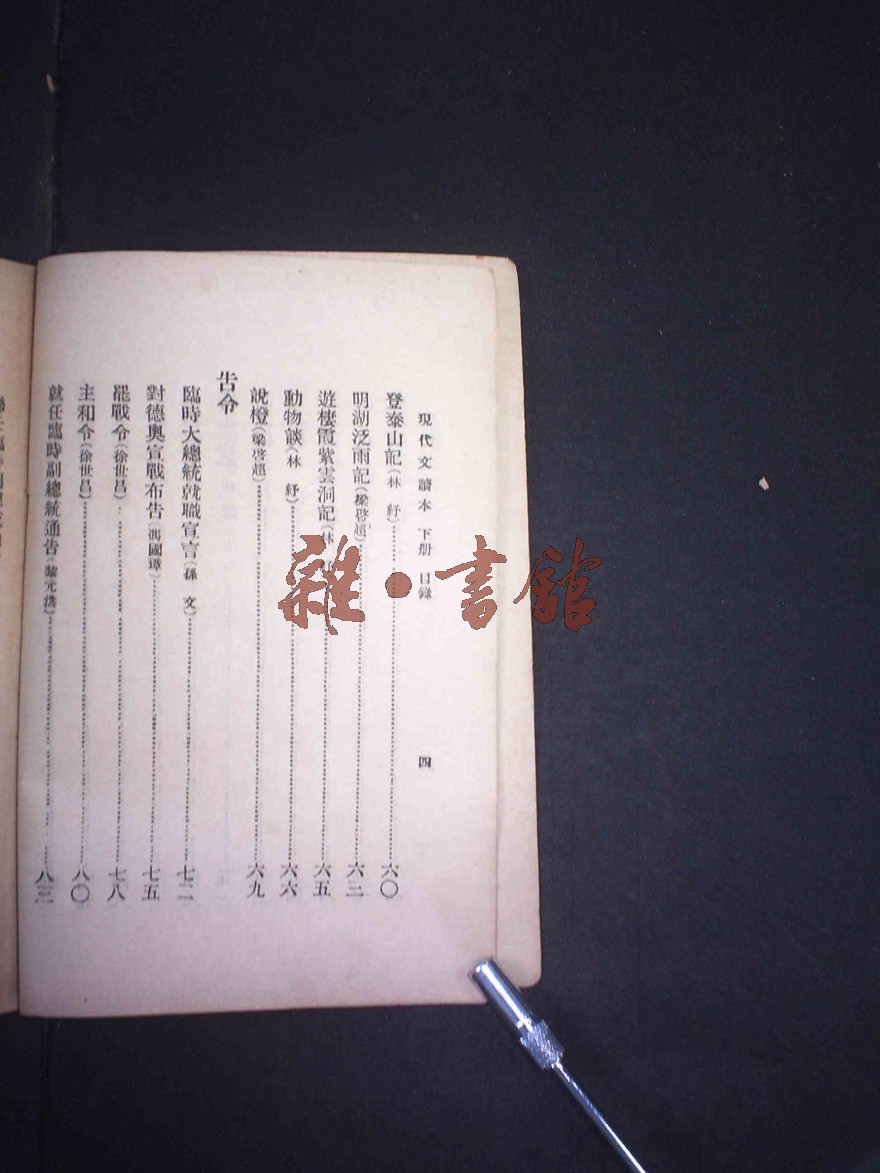 現代文讀本 下册 目錄 四
登泰山記(林 紓)六〇
明湖泛雨記(梁啓超)六三
遊棲霞紫雲洞記(林 紓)六五
動物談(林 紓)六六
說橙(梁啓超)六九
告令
臨時大總統就職宣言(孫 文)七二
對德奧宣戰布告(馮國璋)七五
罷戰令(徐世昌)七八
主和令(徐世昌)八〇
就任臨時副總統通告(黎元洪)八三
雜·書館